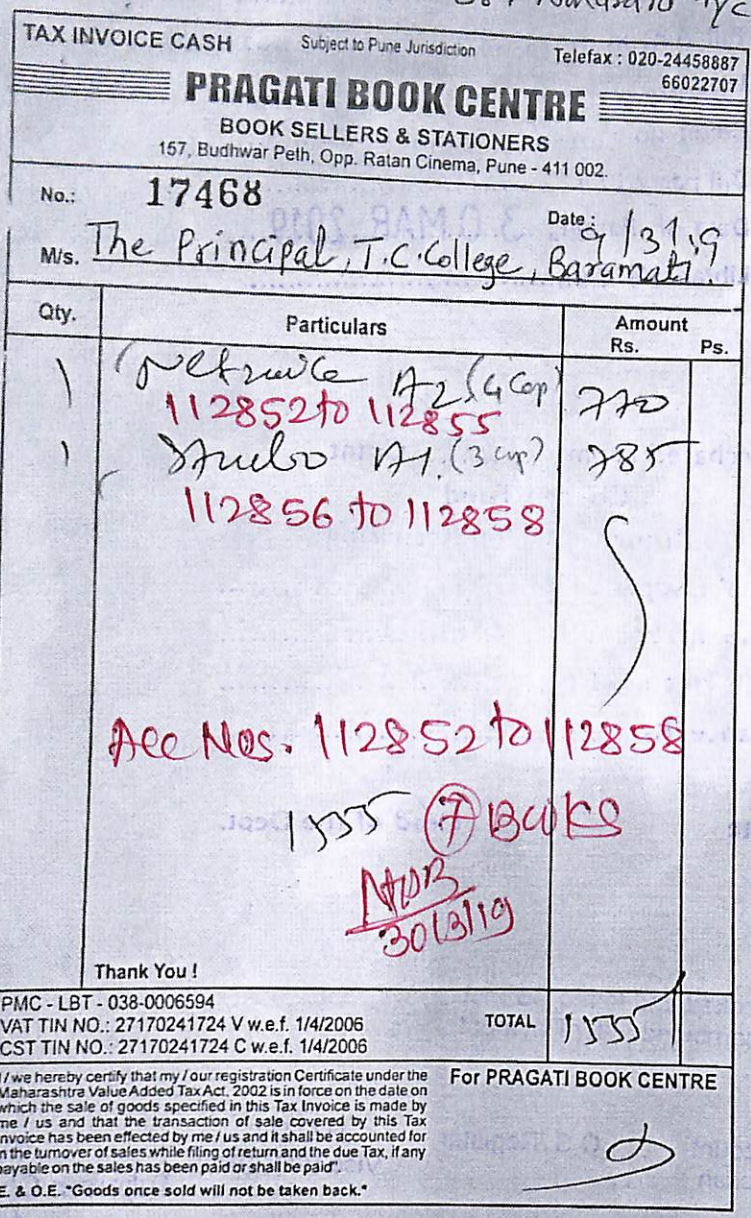 TAX INVOICE CASH Subject to Pune Jurisdiction Telefax : 020-24458887
66022707
PRAGATI BOOK CENTRE
BOOK SELLERS & STATIONERS
157, Budhwar Peth, Opp. Ratan Cinema, Pune - 411 002.
No.: 17468
Date : 9/3/19
M/s. The Principal, T.C. College, Baramati.
Qty. Particulars Amount
Rs. Ps.
1 A2 (4 Cop) 770
112852 to 112855
1 A1. (3 cop) 785
112856 to 112858
Acc Nos. 112852 to 112858
1555 7 BOOKS
30/3/19
Thank You !
PMC - LBT - 038-0006594
VAT TIN NO.: 27170241724 V w.e.f. 1/4/2006
CST TIN NO.: 27170241724 C w.e.f. 1/4/2006
TOTAL 1555
I / we hereby certify that my / our registration Certificate under the
Maharashtra Value Added Tax Act, 2002 is in force on the date on
which the sale of goods specified in this Tax Invoice is made by
me / us and that the transaction of sale covered by this Tax
Invoice has been effected by me / us and it shall be accounted for
in the turnover of sales while filing of return and the due Tax, if any
payable on the sales has been paid or shall be paid".
E. & O.E. "Goods once sold will not be taken back."
For PRAGATI BOOK CENTRE